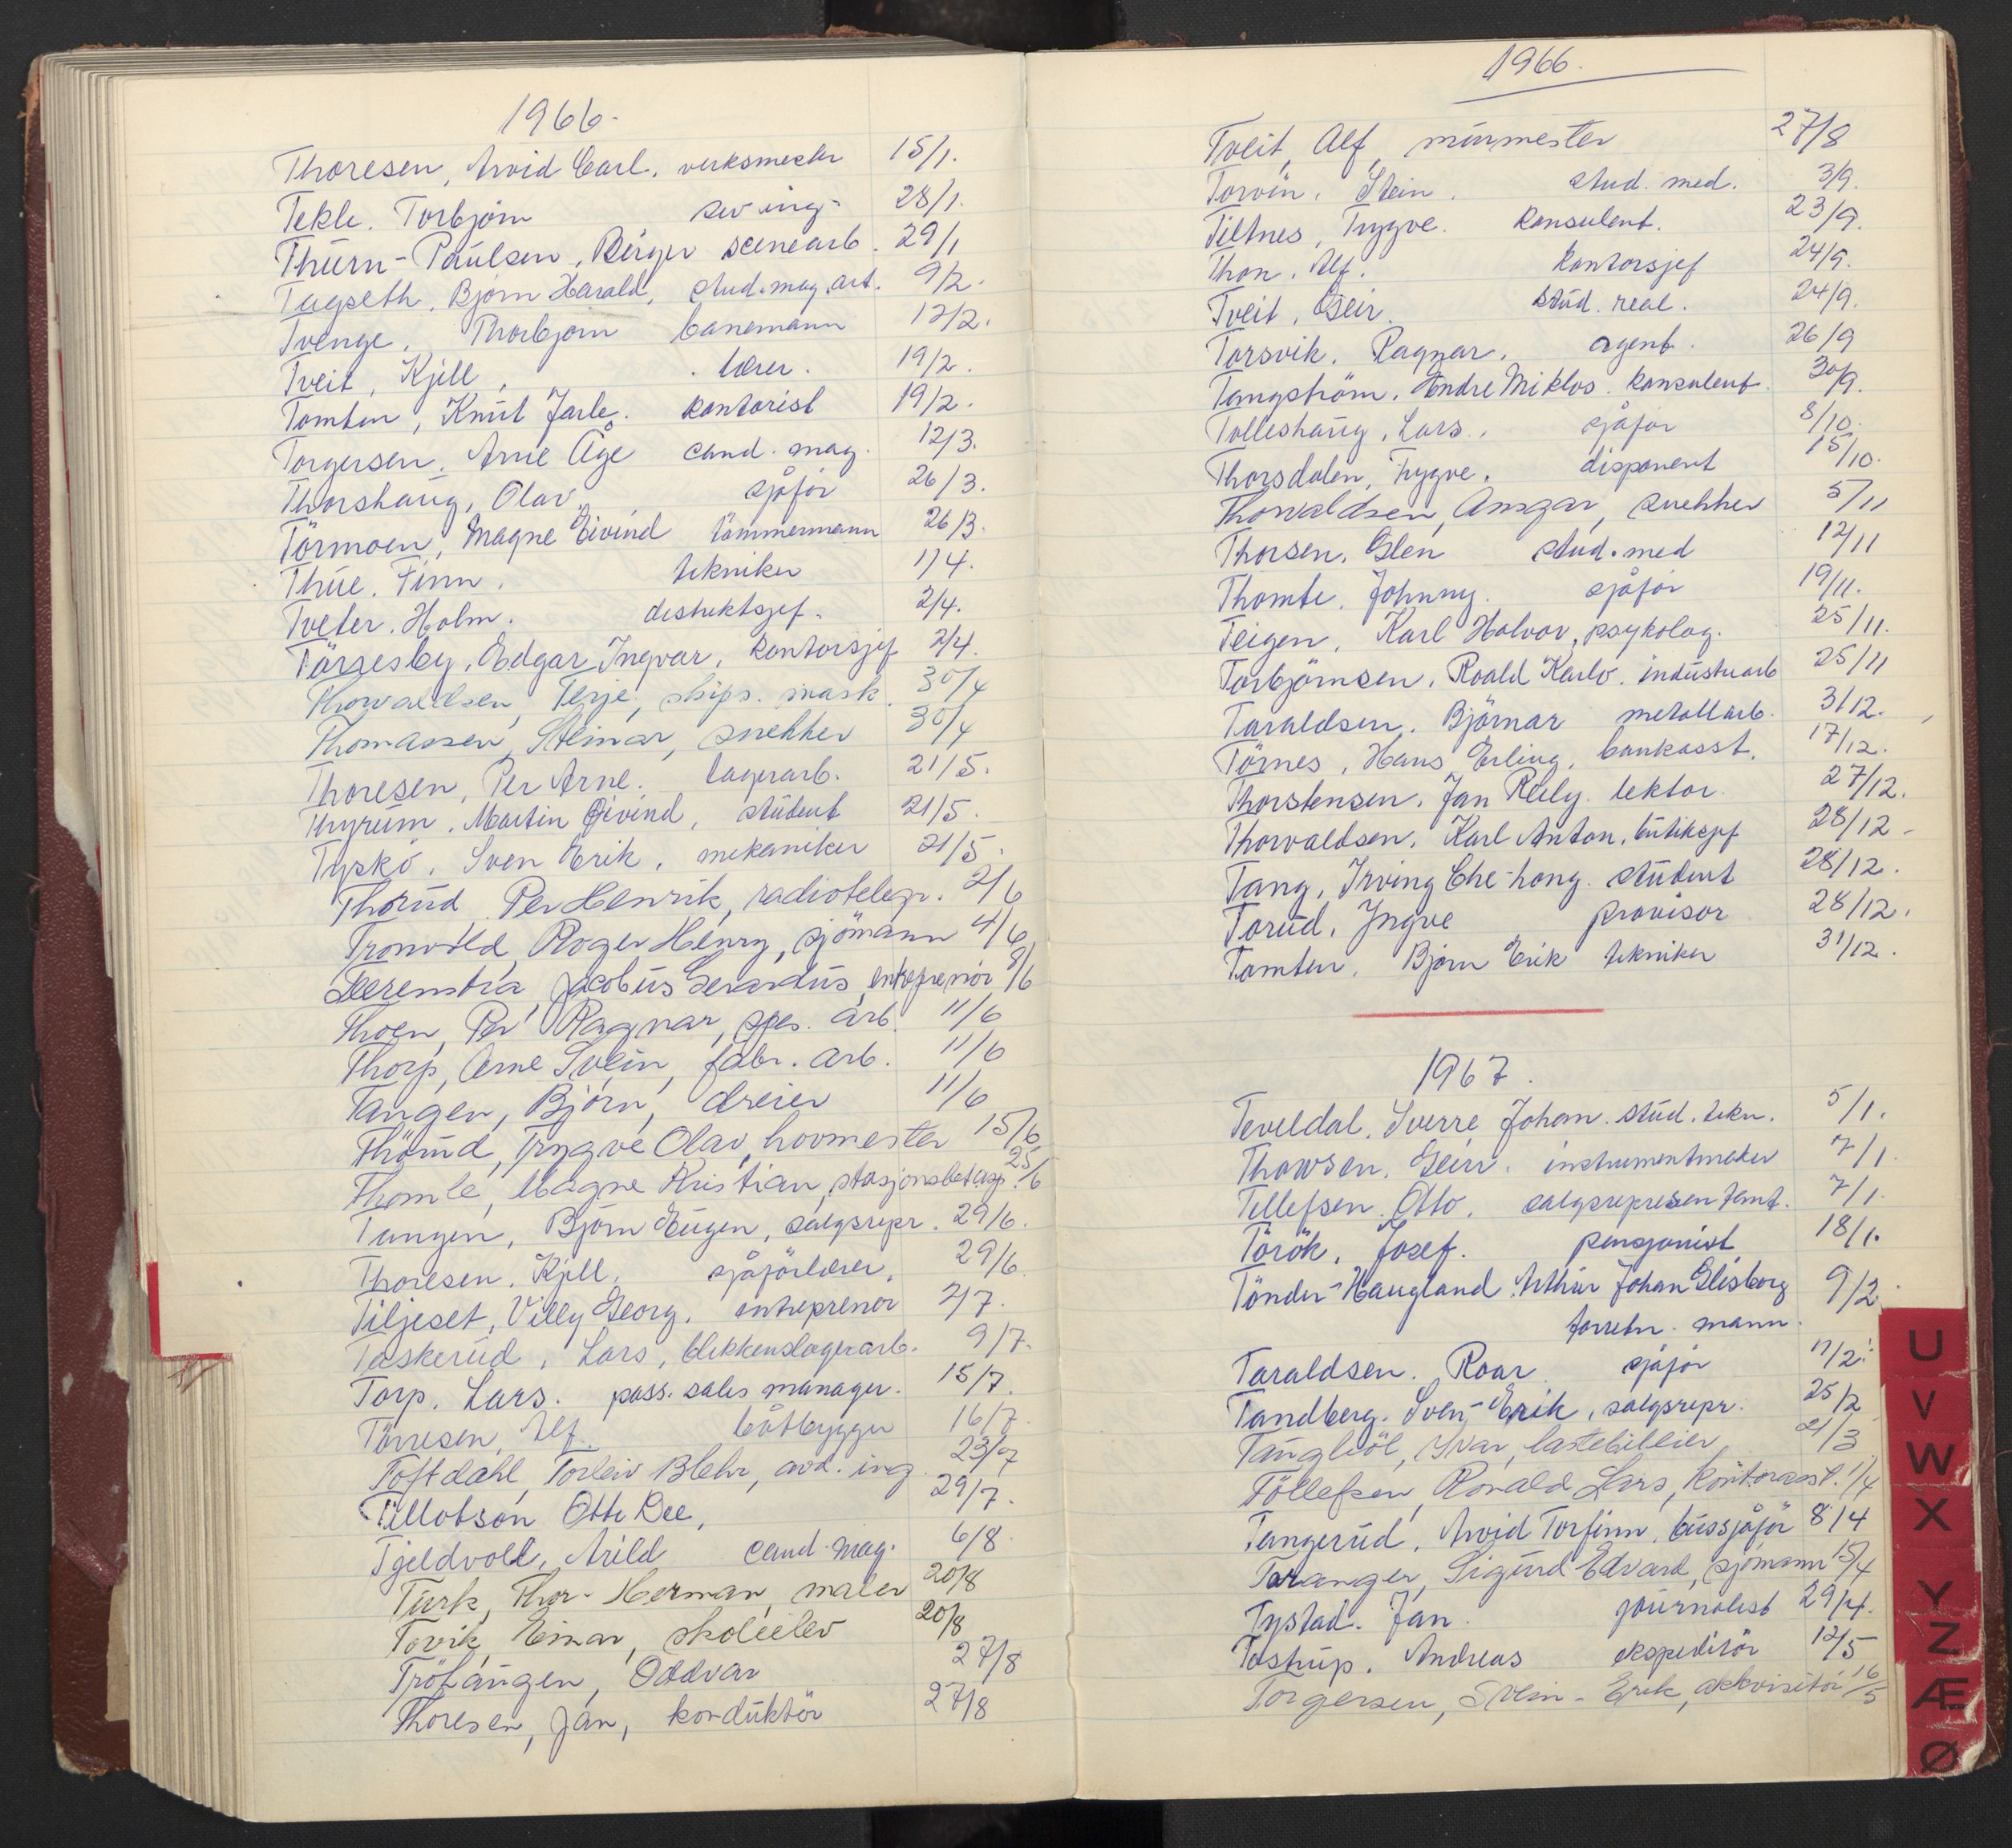 1966.
Thoresen, Arvid Carl. verksmester 15/1.
Tekle. Torbjörn siv ing. 28/1.
Thürn-Paulsen, Birger scenearb. 29/1
Tagseth, Björn Harald, stud. mag. art. 9/2.
Tvenge. Thorbjörn banemann 12/2.
Tveit, Kjell, lærer. 19/2.
Tomten, Knut Jarle. kontorist 19/2.
Torgersen. Arne Åge cand. mag. 12/3.
Thorshaug, Olav. sjåför 26/3.
Törmoen, Magne Eivind tömmermann 26/3.
Thue. Finn. tekniker 1/4.
Tveter. Holm. distriktsjef. 2/4.
Törresby, Edgar Ingvar, kontorsjef 2/4.
Thorvaldsen, Terje, skips. mask. 30/4
Thomassen, Steinar, snekker 30/4
Thoresen, Per Arne. lagerarb. 21/5.
Thyrum, Martin Öivind, student 21/5.
Tyskö, Sven Erik, mekaniker 21/5.
Thorud Per Henrik, radiotelegr. 2/6
Tronvold, Roger Henry, sjömann 4/6
Jacobus Gerardus, entreprenör 8/6
Thoen, Per Ragnar, spes. arb. 11/6
Thorp, Arne Svein, fabr. arb. 11/6
Tangen, Björn, dreier 11/6
Thörud, Trygve Olav, hovmester 15/6
Thomle, Magne Kristian, stasjonsbetj. 25/6
Tangen, Björn Eugen, salgsrepr. 29/6.
Thoresen. Kjell. sjåförlærer. 29/6
Tiljeset, Villy Georg. entreprenör 2/7.
Taskerud, Lars, blikkenslagerarb. 9/7.
Torp. Lars. pass. sales manager. 15/7.
Törresen, Alf. båtbygger 16/7.
Toftdahl, Torleiv Blehr, avd. ing. 23/7
Tillotson Otte Dee, 29/7.
Tjeldvoll, Arild cand. mag. 6/8.
Türk, Thor-Herman, maler 20/8
Tovik, Einar, skoleelev 20/8
Tröhaugen, Oddvar 27/8
Thoresen, Jan, konduktör 27/8
1966.
Tveit, Alf, murmester 27/8
Torvin. Stein. stud. med. 3/9.
Tiltnes, Trygve. konsulent. 23/9.
Thon. Alf. kontorsjef 24/9.
Tveit, Geir. stud. real. 24/9.
Torsvik. Ragnar. agent. 26/9
Tangström. Endre Miklos. konsulent. 30/9.
Tolleshaug, Lars. sjåför 8/10.
Thorsdalen, Trygve. disponent 15/10.
Thorvaldsen, Ansgar, snekker 5/11
Thorsen. Glen stud. med 12/11
Thomte. Johnny. sjåför 19/11.
Teigen, Karl Halvor, psykolog. 25/11.
Torbjörnsen. Roald Karlo. industriarb 25/11
Taraldsen. Björnar metallarb. 3/12.
Törnes, Hans Erling. bankasst. 17/12.
Thorstensen. Jan Rely. lektor. 27/12.
Thorvaldsen. Karl Anton, butiksjef 28/12.
Tang, Irving Che-hong. student 28/12.
Torud, Yngve provisor 28/12.
Tomten. Björn Erik tekniker 31/12.
1967.
Teveldal, Sverre Johan. stud. tekn. 5/1.
Thowsen, Geirr. instrumentmaker 7/1
Tellefsen Otto. salgsrepresentant. 7/1.
Török, Josef. pensjonist 18/1.
Tönder-Haugland Arthur Johan Elisborg 9/2.
forretn. mann.
Taraldsen. Roar sjåför 11/2.
Tandberg. Sven-Erik, salgsrepr. 25/2
Yvar, lastebileier 21/3
Töllefsen, Ronald Lars, kontorasst. 1/4
Tangerud, Arvid Torfinn. bussjåför 8/4
Taranger, Sigurd Edvard, sjömann 15/4
Tystad. Jan. journalist 29/4.
Tostrup. Andreas ekspeditör 12/5
Torgersen, Svein-Erik, akkvisitör 16/5
U
V
W
X
Y
Z
Æ
Ø